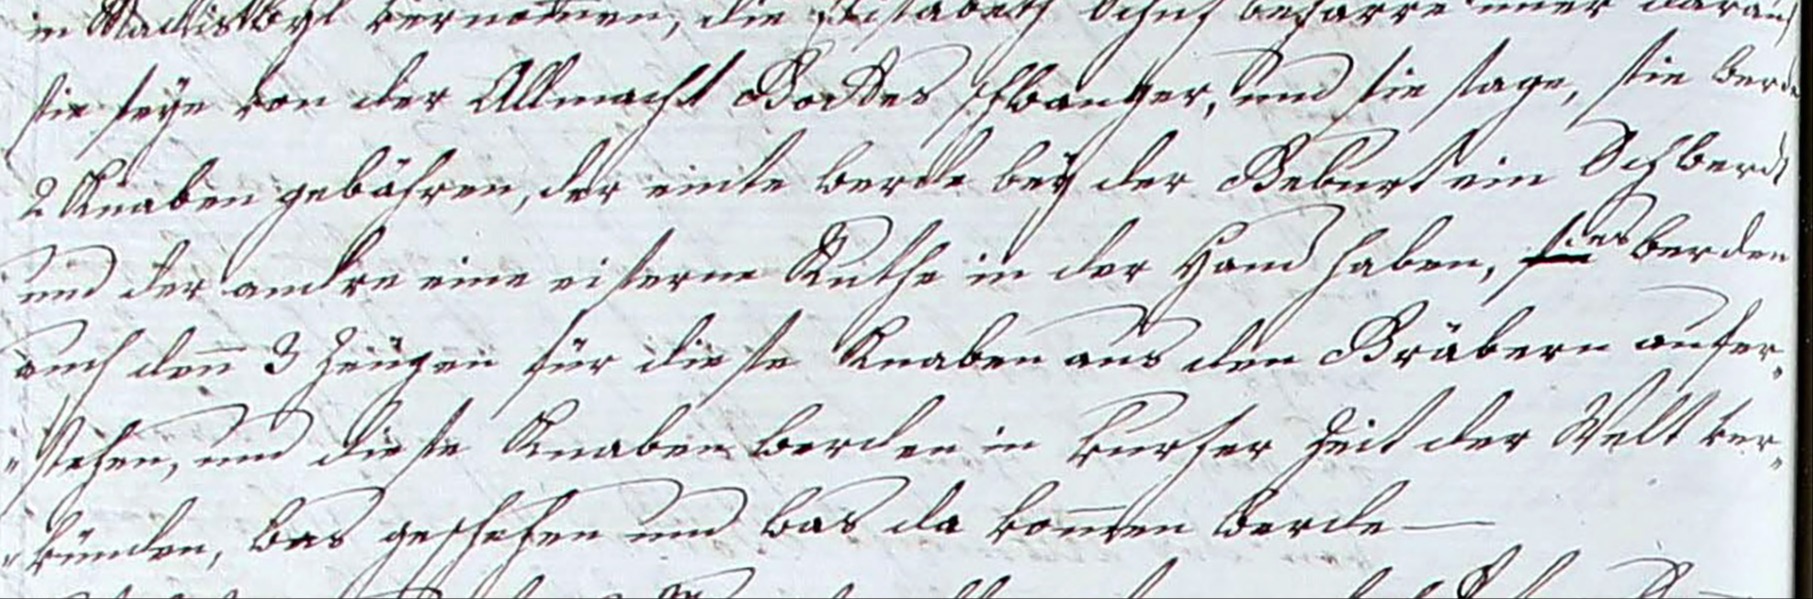 vernommen, die Elisabeth beharre immer darauf
sie seye von der Allmacht Gottes schwanger, und sie sage, sie werde
2 Knaben gebähren, der einte werde beÿ der Geburt ein Schwerdt
und der andre eine eiserne Ruthe in der Hand haben, sie es werden
auch dann 3 Zeugen für diese Knaben aus den Gräbern aufer„
„stehen, und diese Knaben werden in kurzer Zeit der Welt ver„
„künden, was geschehen und was da kommen werde —